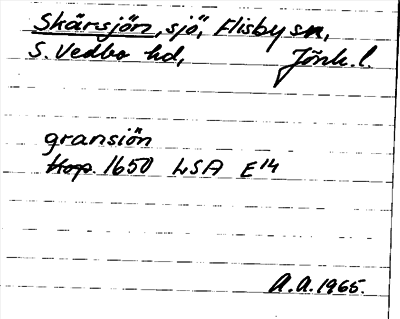 Skärsjön, sjö, Flisby sn,
S. Vedbo hd, Jönk. l.
gransiön
Kop. 1650 LSA E14
A.A. 1965.